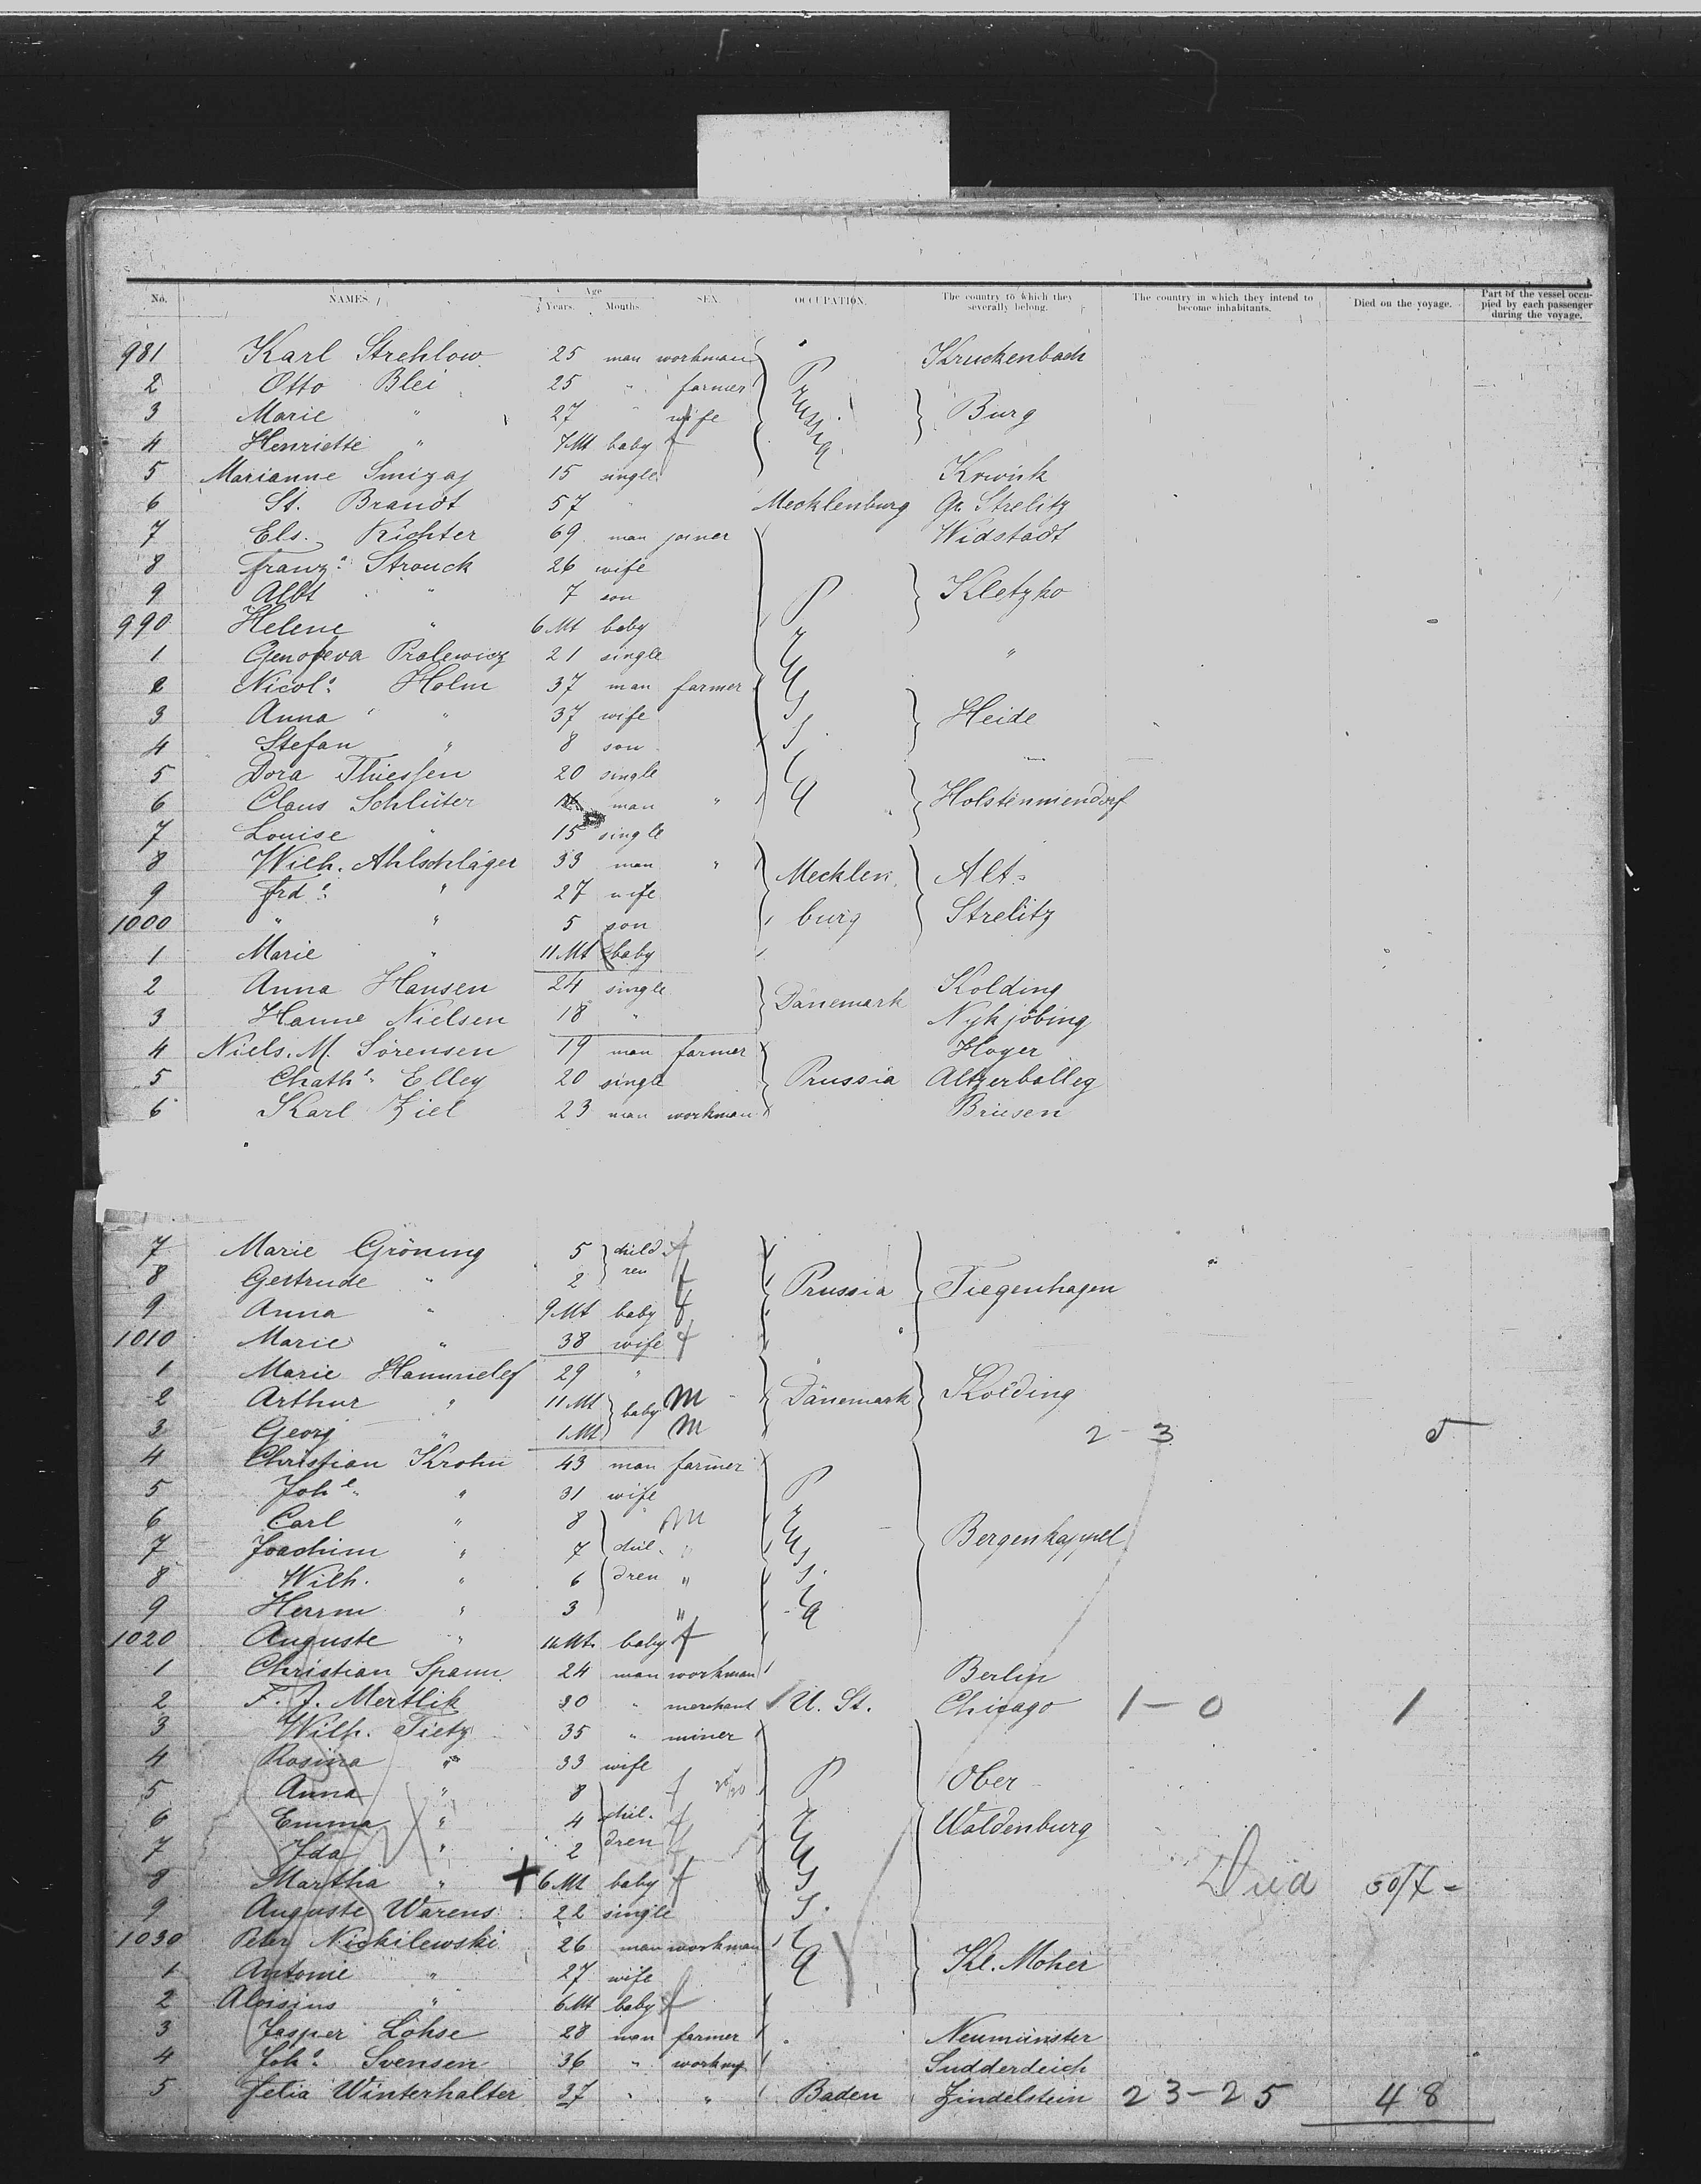 No. NAMES. Age Years. Months. SEX. OCCUPATION. The country to which they severally belong. The country in which they intend to become inhabitants. Died on the voyage. Part of the vessel occupied by each passenger during the voyage.
981 Karl Strehlow 25 man workman Kruckenbach
2 Otto Blei 25 " farmer Prussia
3 Marie " 27 " wife Burg
4 Henriette " 7 Mt baby f
5 Marianne Smizaj 15 single
6 St. Brandt 57 " Mecklenburg Gr. Strelitz
7 Els. Richter 69 man joiner Widstadt
8 Franz.ª Strouck 26 wife
9 Albt " 7 son Prussia Kletzko
990 Helene " 6 Mt baby
1 Genofeva Pralewicz 21 single "
2 Nicol.ª Holm 37 man farmer
3 Anna " 37 wife Heide
4 Stefan " 8 son
5 Dora Thiessen 20 single
6 Claus Schlüter man " Holstenniendorf
7 Louise " 15 single
8 Wilh. Ahlschläger 33 man " Mecklen Alt-
9 Frd.ª " 27 wife
1000 " " 5 son burg Strelitz
1 Marie " 11 Mt baby
2 Anna Hansen 24 single Dänemark Kolding
3 Hanne Nielsen 18 " Nykjöbing
4 Niels. M. Sörensen 19 man farmer Hoyer
5 Chath.ª Elley 20 single Prussia Altzerballeg
6 Karl Ziel 23 man workman Briesen
7 Marie Gröning 5 child f
8 Gertrude " 2 ren f Prussia Tiegenhagen
9 Anna " 9 Mt baby f
1010 Marie " 38 wife f
1 Marie Hammelef 29 "
2 Arthur " 11 Mt baby M Dänemark Kolding
3 Georg " 1 Mt M 2-3 5
4 Christian Krohn 43 man farmer
5 Joh.e " 31 wife Prussia
6 Carl " 8 M
7 Joachim " 7 chil- " Bergenkappel
8 Wilh. " 6 dren "
9 Herrm " 3 "
1020 Auguste " 11 Mt. baby f
1 Christian Spann 24 man workman Berlin
2 F. J. Mertlik 30 " merchant U. St. Chicago 1-0 1
3 Wilh. Tietz 35 " miner
4 Rosina " 33 wife
5 Anna " 8 f Prussia Ober-
6 Emma " 4 chil- f Waldenburg
7 Ida " 2 dren f
8 Martha " + 6 Mt baby f Died
9 Auguste Warens 22 single
1030 Peter Nickilewski 26 man workman
1 Antonie " 27 wife Kl. Moher
2 Aloisius " 6 Mt baby f
3 Jasper Löhse 28 man farmer Neumünster
4 Joh.ª Svensen 36 " Sudderdeich
5 Felia Winterhalter 27 " " Baden Zindelstein 23-25 48